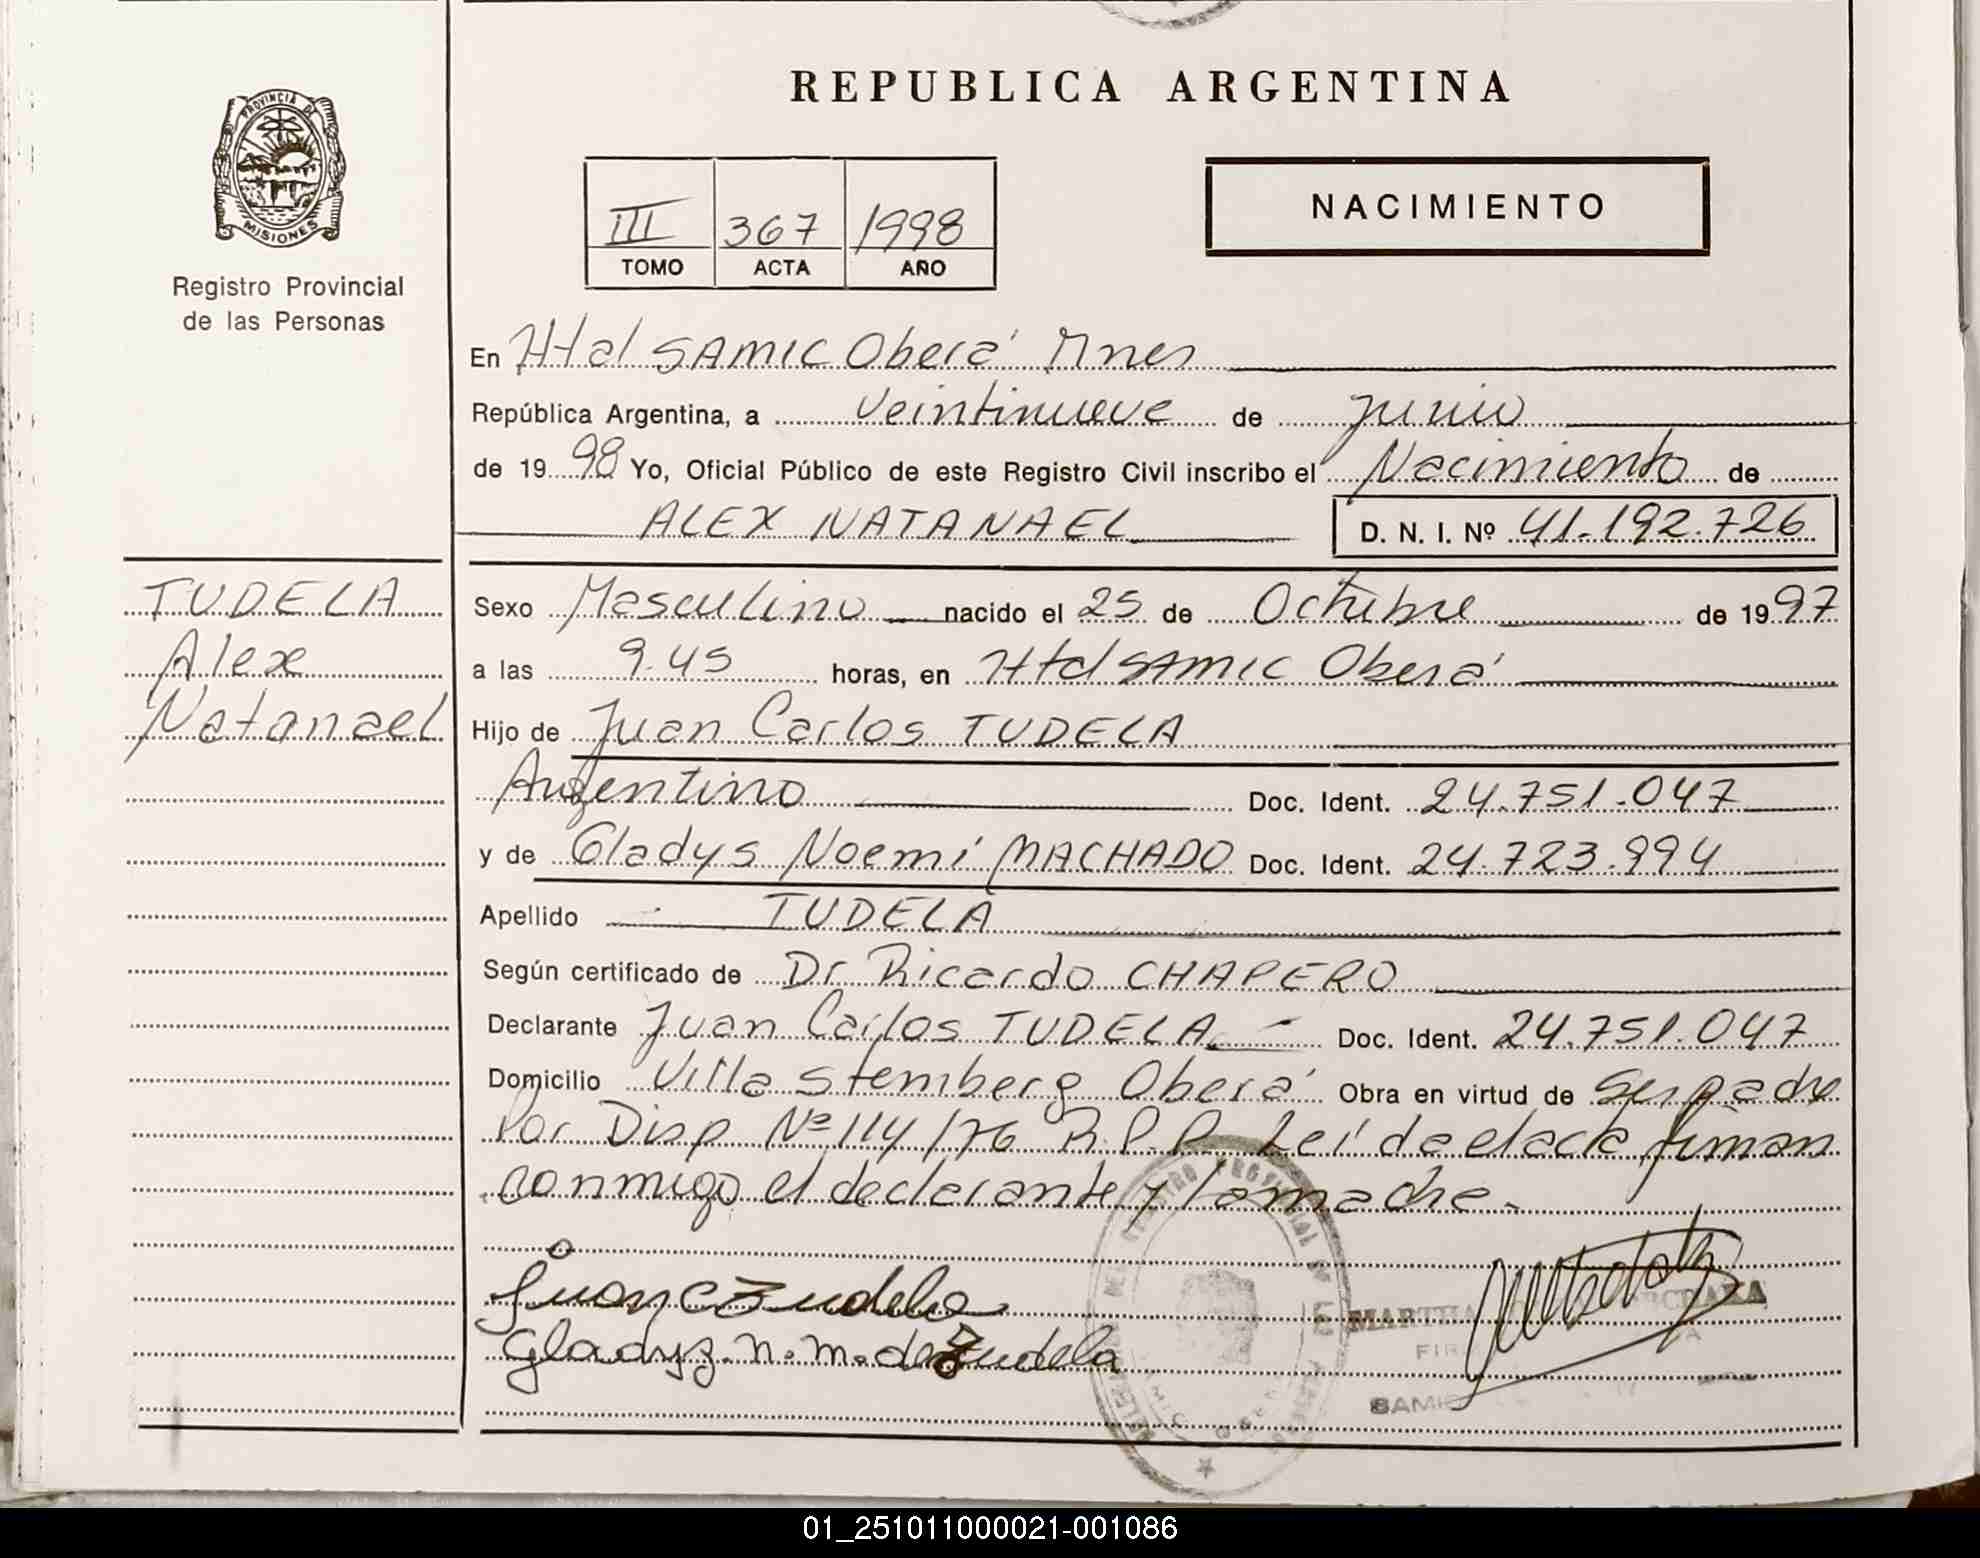 REPUBLICA ARGENTINA
PROVINCIA DE
MISIONES
Registro Provincial
de las Personas
III 367 1998
TOMO ACTA AÑO
NACIMIENTO
En Htal SAMIC Oberá Mnes
República Argentina, a veintinueve de Junio
de 1998 Yo, Oficial Público de este Registro Civil inscribo el Nacimiento de
ALEX NATANAEL D. N. I. Nº 41.192.726
TUDELA
Alex
Natanael
Sexo Masculino nacido el 25 de Octubre de 1997
a las 9.45 horas, en Htal SAMIC Oberá
Hijo de Juan Carlos TUDELA
Argentino Doc. Ident. 24.751.047
y de Gladys Noemí MACHADO Doc. Ident. 24.723.994
Apellido TUDELA
Según certificado de Dr Ricardo CHAPERO
Declarante Juan Carlos TUDELA Doc. Ident. 24.751.047
Domicilio Villa Stemberg Oberá Obra en virtud de ser padre
Por Disp Nº 114/76 R.P.P. Leída el acta firman
conmigo el declarante y la madre.
Juan C Tudela
Gladyz. N. M. de Tudela
MARTHA
SAMIC
01_251011000021-001086